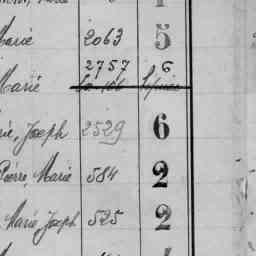 Marie 2063 5
2757 6
Marie
Joseph 2529 6
Pierre, Marie 584 2
Marie Joseph 525 2